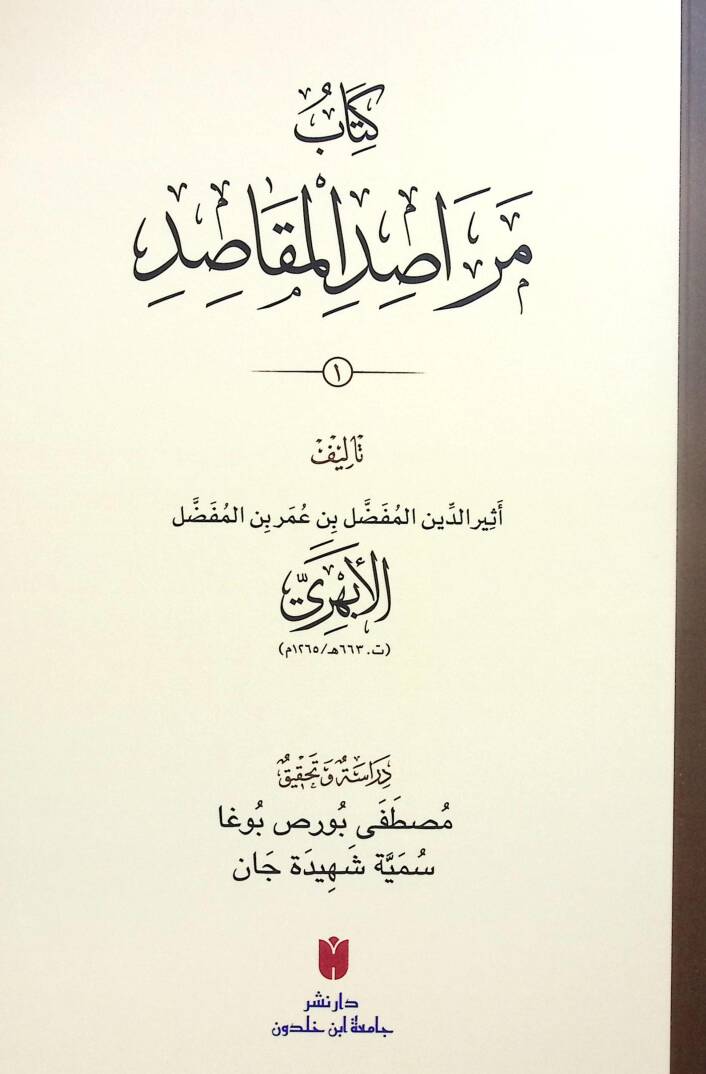 كِتَابُ
مَرَاصِدِ الْمَقَاصِدِ
١
تَأْلِيفُ
أَثِير الدِّين المُفَضَّل بِن عُمَر بِن المُفَضَّل
الأَبْهَرِيّ
(ت. ٦٦٣هـ/١٢٦٥م)
دِرَاسَةٌ وَتَحْقِيقٌ
مُصطَفَى بُورص بُوغا
سُمَيَّة شَهِيدَة جَان
دار نشر
جامعة ابن خلدون